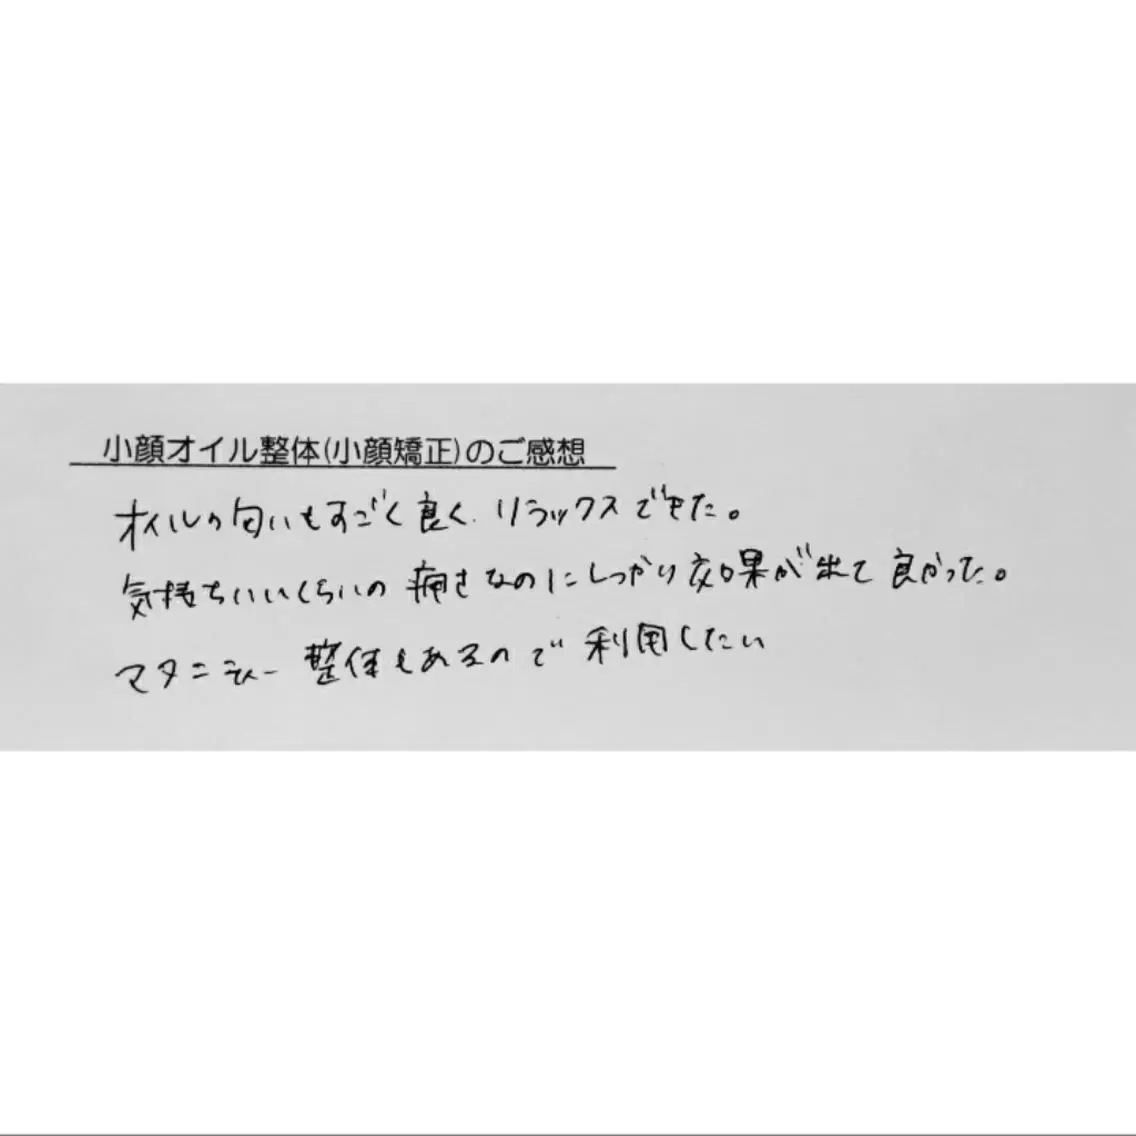 小顔オイル整体(小顔矯正)のご感想
オイルの匂いもすごく良く、リラックスできた。
気持ちいいくらいの痛さなのにしっかり効果が出て良かった。
マタニティー整体もあるので利用したい